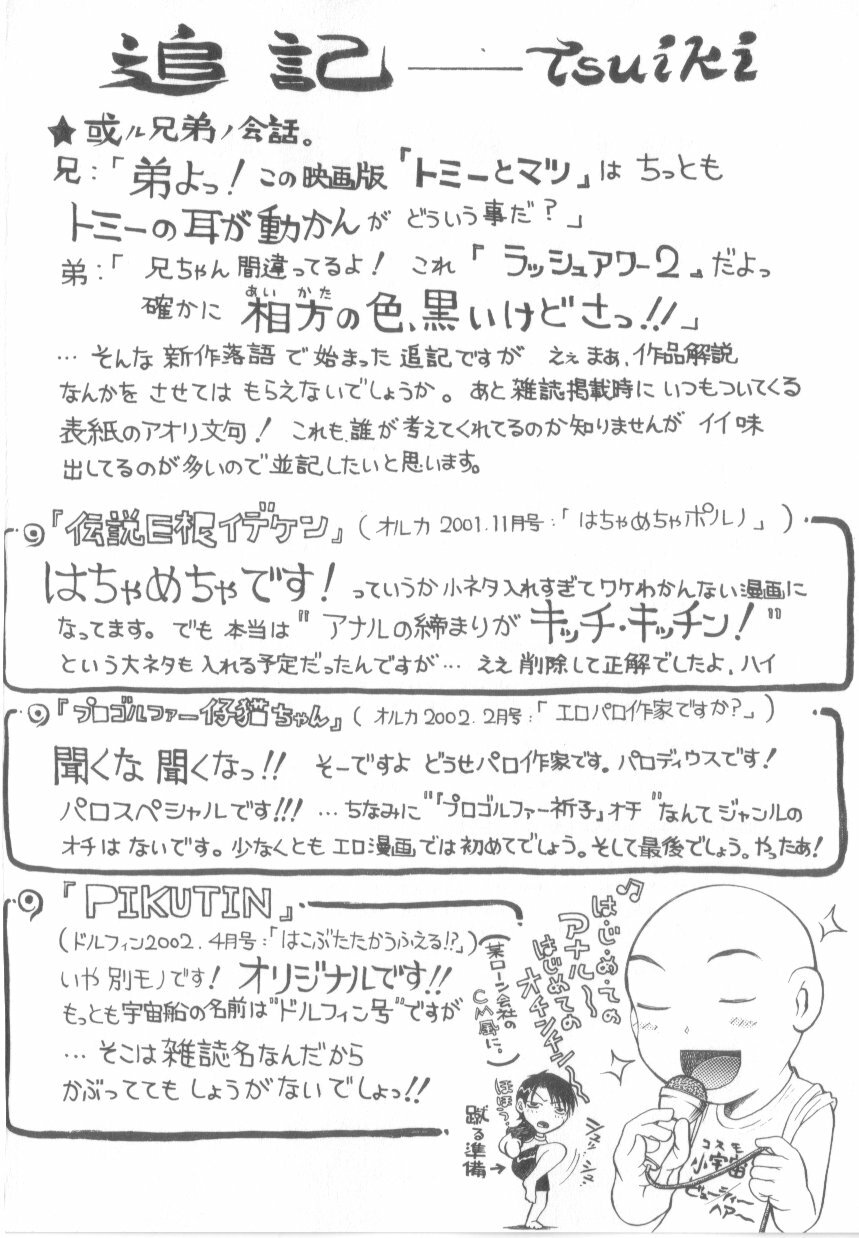 追記——tsuiki
★或ル兄弟ノ会話。
兄:「弟よっ!この映画版『トミーとマツ』はちっとも
トミーの耳が動かんがどういう事だ?」
弟:「兄ちゃん間違ってるよ!これ『ラッシュアワー2』だよっ
あいかた
確かに相方の色、黒いけどさっ!!」
…そんな新作落語で始まった追記ですがえぇまあ、作品解説
なんかをさせてはもらえないでしょうか。あと雑誌掲載時にいつもついてくる
表紙のアオリ文句!これも、誰が考えてくれてるのか知りませんがイイ味
出してるのが多いので並記したいと思います。
『伝説巨根イデケン』(オルカ2001.11月号:「はちゃめちゃポルノ」)
はちゃめちゃです!っていうか小ネタ入れすぎてワケわかんない漫画に
なってます。でも本当は"アナルの締まりがキッチ・キッチン!"
という大ネタも入れる予定だったんですが…ええ削除して正解でしたよ、ハイ
『プロゴルファー仔猫ちゃん』(オルカ2002.2月号:「エロパロ作家ですか?」)
聞くな聞くなっ!!そーですよどうせパロ作家です。パロディウスです!
パロスペシャルです!!!…ちなみに"『プロゴルファー祈子』オチ"なんてジャンルの
オチはないです。少なくともエロ漫画では初めてでしょう。そして最後でしょう。やったあ!
『PIKUTIN』
(ドルフィン2002.4月号:「はこぶたたかうふえる!?」)
いや別モノです!オリジナルです!!
もっとも宇宙船の名前は"ドルフィン号"ですが
…そこは雑誌名なんだから
かぶっててもしょうがないでしょっ!!
♪は・じ・め・ての
アナル〜
はじめての
オチンチン〜
(某ローン会社の
CM風に。)
ほほう。
蹴る準備→
コスモ
小宇宙
ビューティー
ヘアー